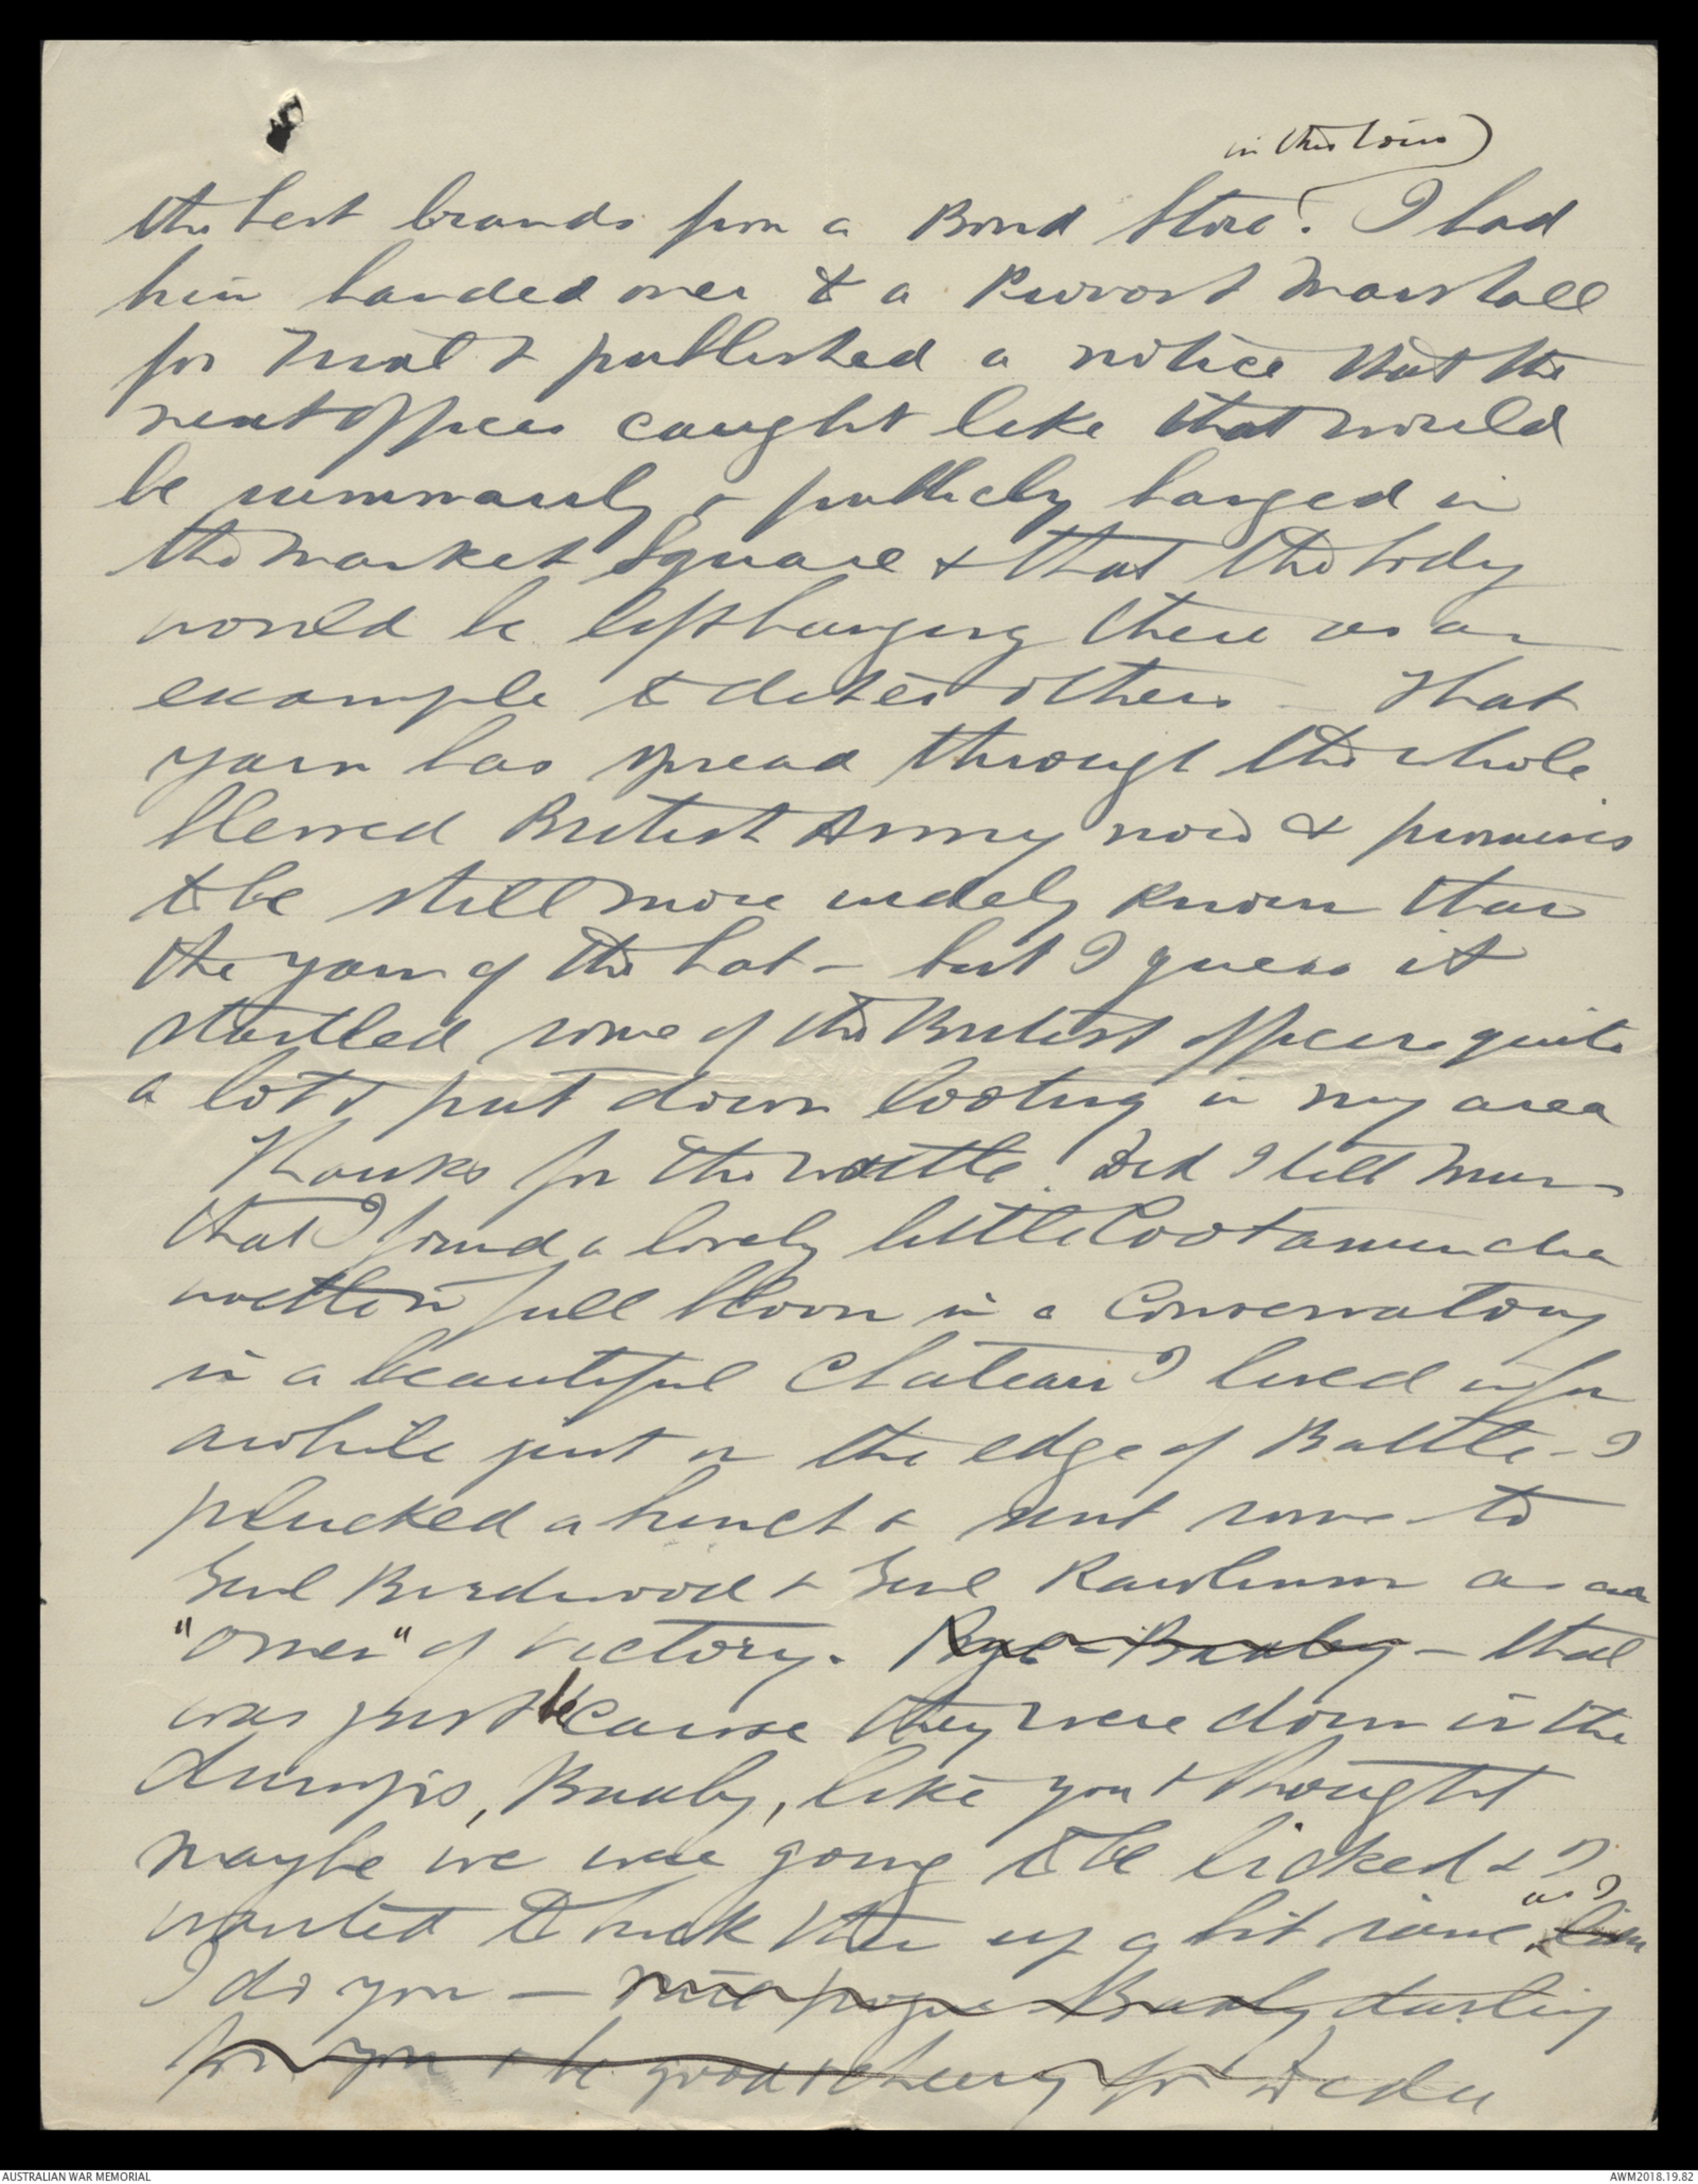 in this town)
the best brands from a Bond Store! I had
him handed over to a Provost Marshall
for Trial & published a notice that the
next officer caught like that would
be summarily & publicly hanged in
the market Square & that the body
would be left hanging there as an
example to deter others - That
yarn has spread through the whole
blessed British Army now & promises
to be still more widely known than
the yarn of the hat - but I guess it
startled some of the British officers quite
a lot & put down looting in my area
Thanks for the wattle. Did I tell Mum
that I found a lovely little Cootamundra
wattle in full bloom in a Conservatory
in a beautiful Chateau I lived in for
awhile just on the edge of Battle - I
plucked a bunch & sent some to
Genl Birdwood & Genl Rawlinson as an
"omen" of victory. Bye Bye Buxby - that
was just 'cause they were down in the
dumps, Buxby, like you & thought
maybe we were going to be licked & I
wanted to buck them up a bit same as I
I do you - Buxby darling
for you & be good & cheery for Dedu
AUSTRALIAN WAR MEMORIAL
AWM2018.19.82